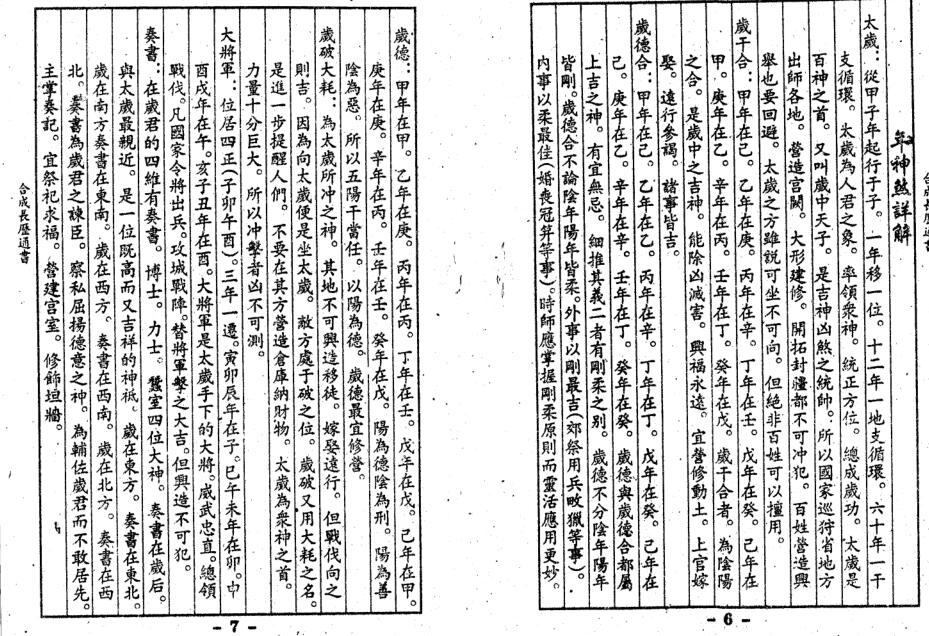 合成長歷通書
年神煞詳解
太歲：從甲子年起行于子。一年移一位。十二年一地支循環。六十年一干
支循環。太歲為人君之象。率領衆神。統正方位。總成歲功。太歲是
百神之首。又叫歲中天子。是吉神凶煞之統帥。所以國家巡狩省地方
出師各地。營造宫闕。大形建修。開拓封疆都不可冲犯。百姓營造興
舉也要回避。太歲之方雖説可坐不可向。但絶非百姓可以擅用。
歲干合：甲年在己。乙年在庚。丙年在辛。丁年在壬。戊年在癸。己年在
甲。庚年在乙。辛年在丙。壬年在丁。癸年在戊。歲干合者。為陰陽
之合。是歲中之吉神。能除凶滅害。興福永遠。宜營修動土。上官嫁
娶。遠行參謁。諸事皆吉。
歲德合：甲年在己。乙年在乙。丙年在辛。丁年在丁。戊年在癸。己年在
己。庚年在乙。辛年在辛。壬年在丁。癸年在癸。歲德與歲德合都屬
上吉之神。有宜無忌。細推其義二者有剛柔之别。歲德不分陰年陽年
皆剛。歲德合不論陰年陽年皆柔。外事以剛最吉（郊祭用兵畋獵等事）。
内事以柔最佳（婚喪冠笄等事）。時師應掌握剛柔原則而靈活應用更妙。
- 6 -
歲德：甲年在甲。乙年在庚。丙年在丙。丁年在壬。戊年在戊。己年在甲。
庚年在庚。辛年在丙。壬年在壬。癸年在戊。陽為德陰為刑。陽為善
陰為惡。所以五陽干當任。以陽為德。歲德最宜修營。
歲破大耗：為太歲所冲之神。其地不可興造移徙。嫁娶遠行。但戰伐向之
則吉。因為向太歲便是坐太歲。敵方處于破之位。歲破又用大耗之名。
是進一步提醒人們。不要在其方營造倉庫納財物。太歲為衆神之首。
力量十分巨大。所以冲擊者凶不可測。
大將軍：位居四正（子卯午酉）。三年一遷。寅卯辰年在子。巳午未年在卯。申
酉戌年在午。亥子丑年在酉。大將軍是太歲手下的大將。威武忠直。總領
戰伐。凡國家令將出兵。攻城戰陣。替將軍擊之大吉。但興造不可犯。
奏書：在歲君的四維有奏書。博士。力士。蠶室四位大神。奏書在歲后。
與太歲最親近。是一位既高而又吉祥的神祇。歲在東方。奏書在東北。
歲在南方奏書在東南。歲在西方。奏書在西南。歲在北方。奏書在西
北。奏書為歲君之諫臣。察私屈揚德意之神。為輔佐歲君而不敢居先。
主掌奏記。宜祭祀求福。營建宫室。修飾垣牆。
合成長歷通書
- 7 -